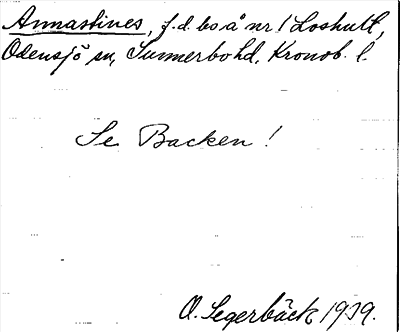 Annastines, f.d. bo å nr 1 Loshult,
Odensjö sn, Sunnerbo hd, Kronob. l.
Se Backen!
O. Segerbäck 1939.